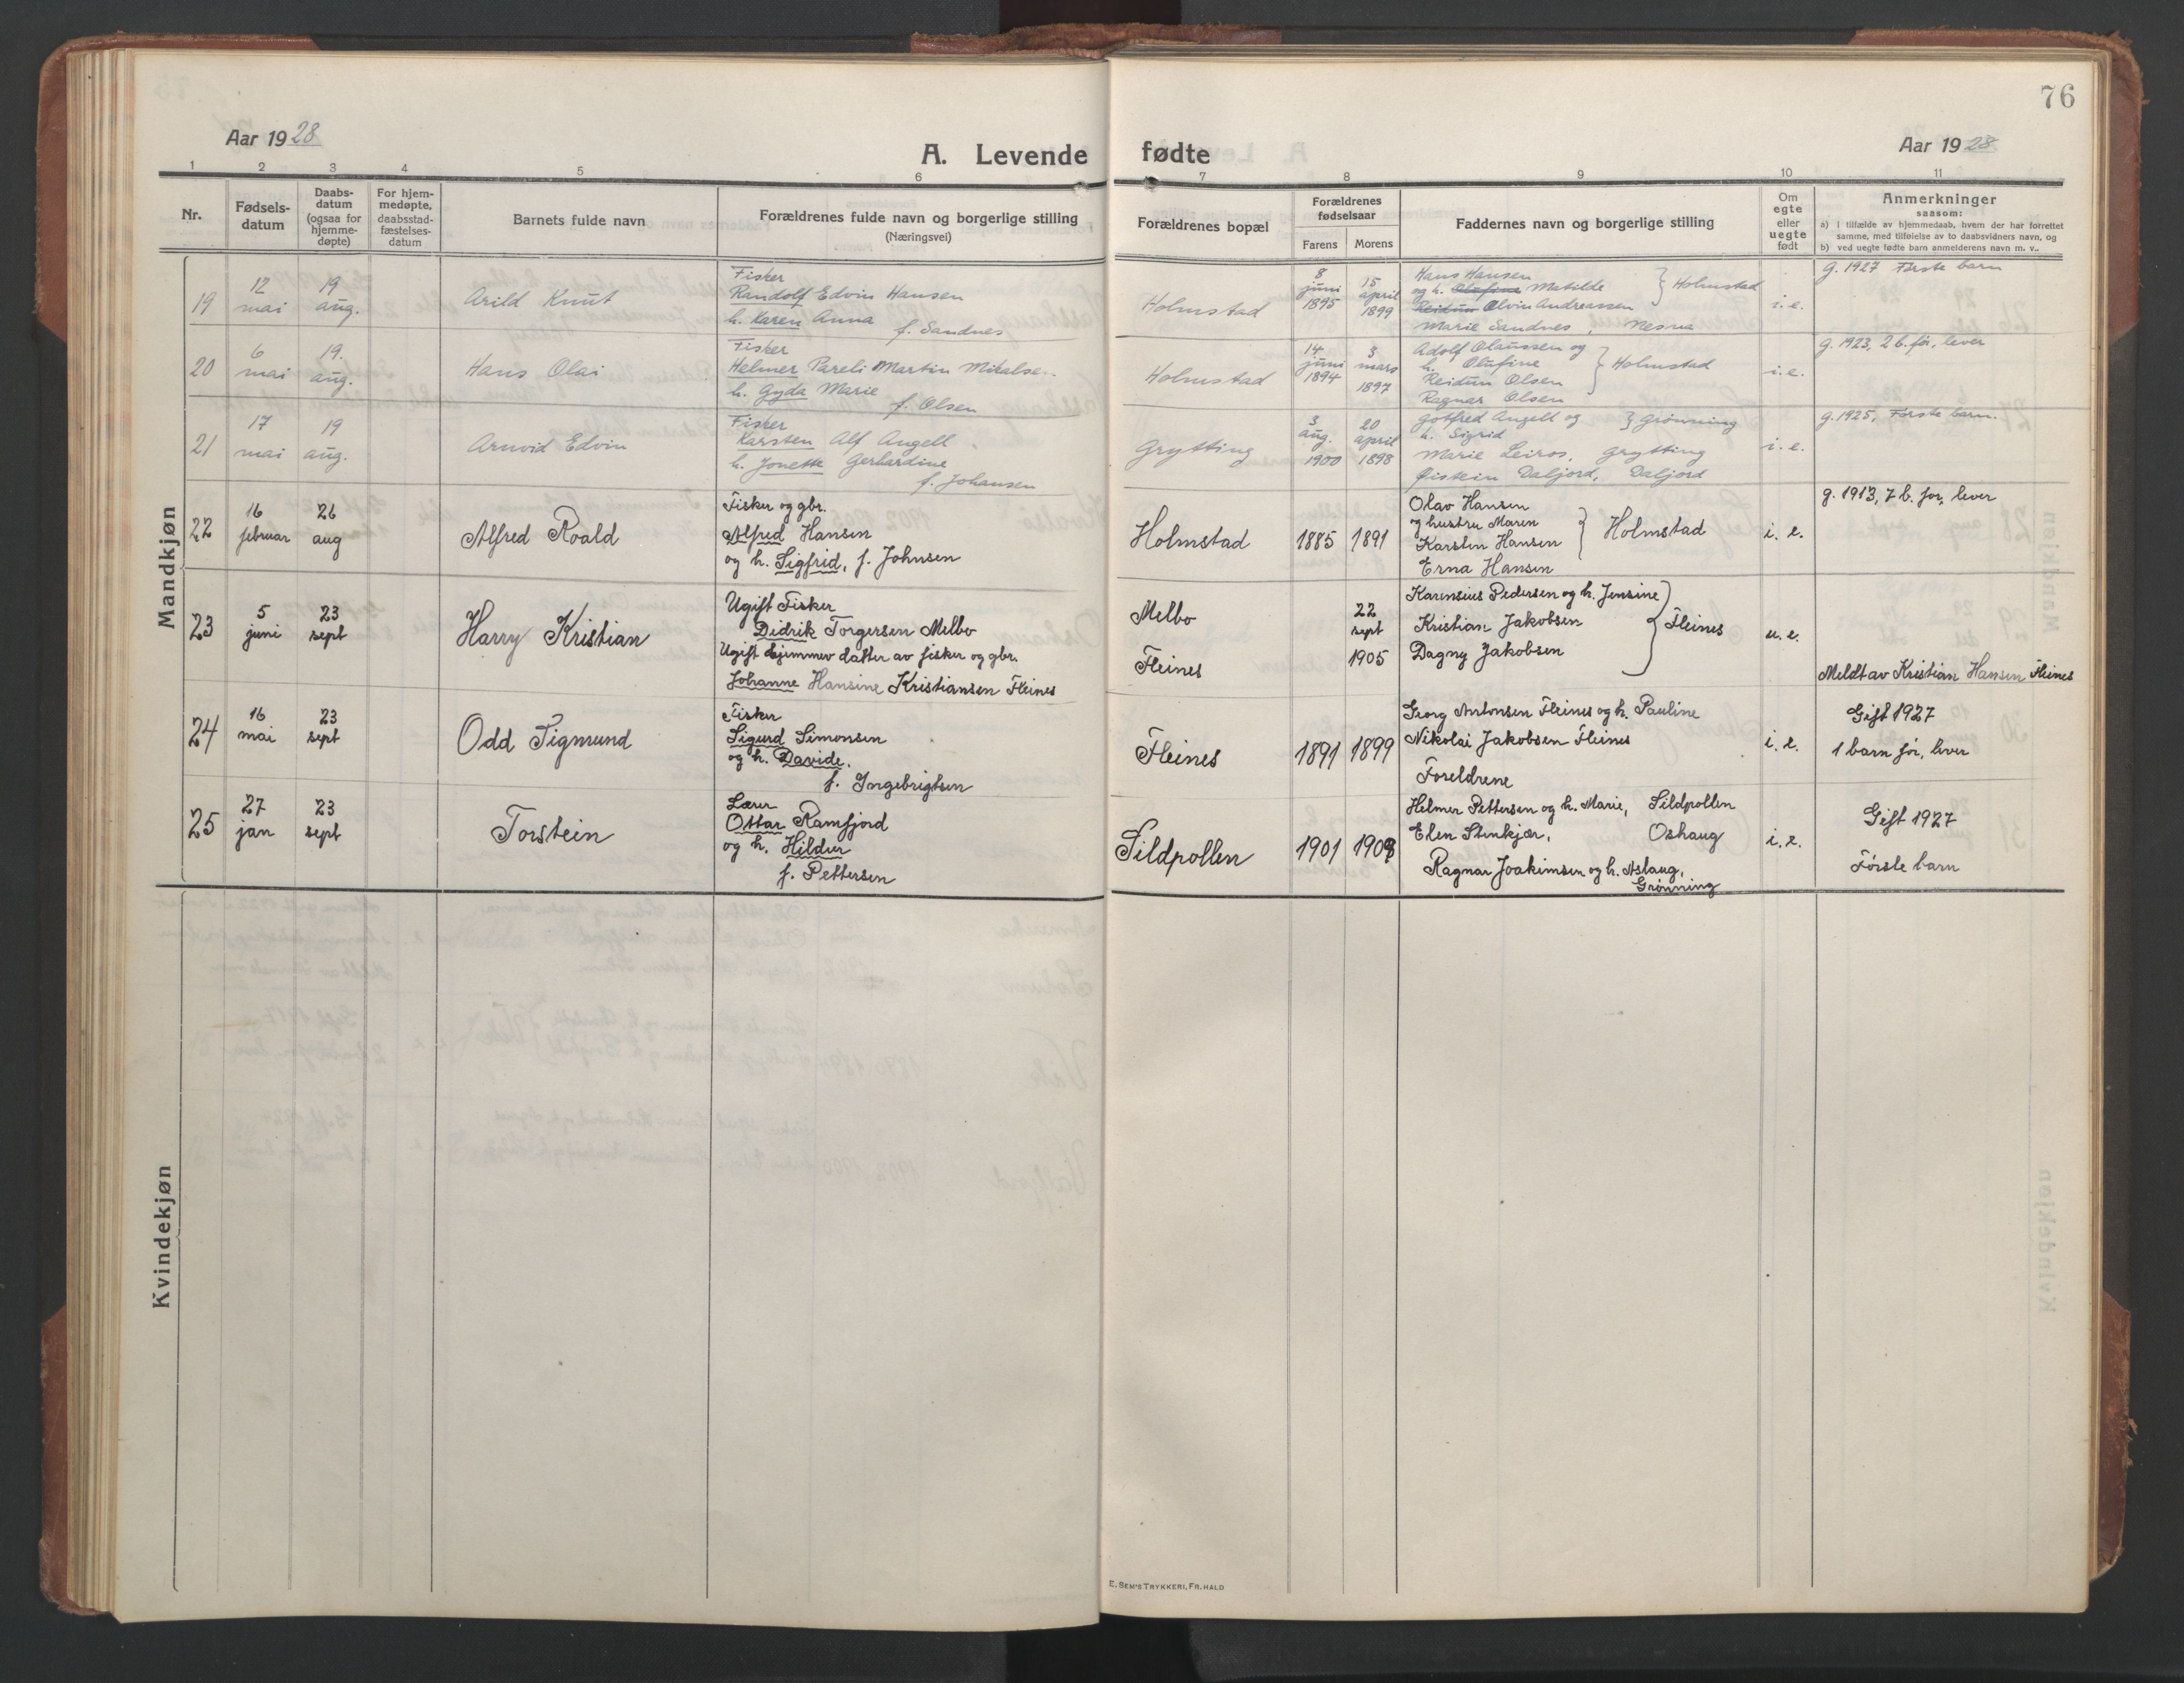 76
Aar 1928
A. Levende fødte
Aar 1928
1 2 3 4 5 6 7 8 9 10 11
Nr.
Fødsels-
datum
Daabs-
datum
(ogsaa for
hjemme-
døpte)
For hjem-
medøpte,
daabsstad-
fæstelses-
datum
Barnets fulde navn
Forældrenes fulde navn og borgerlige stilling
(Næringsvei)
Forældrenes bopæl
Forældrenes
fødselsaar
Farens Morens
Faddernes navn og borgerlige stilling
Om
egte
eller
uegte
født
Anmerkninger
saasom:
a) i tilfælde av hjemmedaab, hvem der har forrettet
samme, med tilføielse av to daabsvidners navn, og
b) ved uegte fødte barn anmelderens navn m. v..
Mandkjøn
19
12
mai
19
aug.
Arild Knut
Fisker
Randolf Edvin Hansen
h. Karen Anna
f. Sandnes
Holmstad
8
juni
1895
15
april
1899
Hans Hansen
og h. Olufine Matilde
Holmstad
Reidun Olvin Andreassen
Marie Sandnes, Nesna
i. e.
g. 1927 Første barn
20
6
mai
19.
aug.
Hans Olai
Fisker
Helmer Pareli Martin Mikalsen
h. Gyda Marie
f. Olsen
Holmstad
14
juni
1894
3
mars
1897
Adolf Olaussen og
h. Olufine
Holmstad
Reidun Olsen
Ragnar Olsen
i. e.
g. 1923, 2 b. før, lever
21
17
mai
19
aug.
Arnvid Edvin
Fisker
Karsten Alf Angell
h. Jonette Gerhardine
f. Johansen
Grytting
3
aug.
1900
20
april
1898
Gotfred Angell og
h. Sigrid
Grønning
Marie Leiros, Grytting
Øistein Daljord, Daljord
i. e.
g. 1925, Første barn.
22
16
februar
26
aug
Alfred Roald
Fisker og gbr.
Alfred Hansen
og h. Sigfrid, f. Johnsen
Holmstad
1885 1891
Olav Hansen
og hustru Maren
Karsten Hansen
Erna Hansen
Holmstad
i. e.
g. 1913, 7 b. før, lever
23
5
juni
23
sept
Harry Kristian
Ugift Fisker
Didrik Torgersen Melbo
Ugift hjemmev datter av fisker og gbr.
Johanne Hansine Kristiansen Fleines
Melbo
Fleines
22
sept
1905
Karensius Pedersen og h. Jensine
Kristian Jakobsen
Dagny Jakobsen
Fleines
u. e.
Meldt av Kristian Hansen Fleines
24
16
mai
23
sept
Odd Sigmund
Fisker
Sigurd Simonsen
og h. Davide.
f. Ingebrigtsen
Fleines
1891 1899
Georg Antonsen Fleines og h. Pauline
Nikolai Jakobsen Fleines
Foreldrene
i. e.
Gift 1927
1 barn før, lever
25
27
jan
23
sept
Torstein
Lærer
Ottar Ramfjord
og h. Hildur
f. Pettersen
Sildpollen
1901
Helmer Pettersen og h. Marie, Sildpollen
Elen Stenkjær, Oshaug
Ragnar Joakimsen og h. Aslaug,
Grønning
i. e.
Gift 1927
Første barn
Kvindekjøn
E. Sem's Trykkeri, Fr.hald